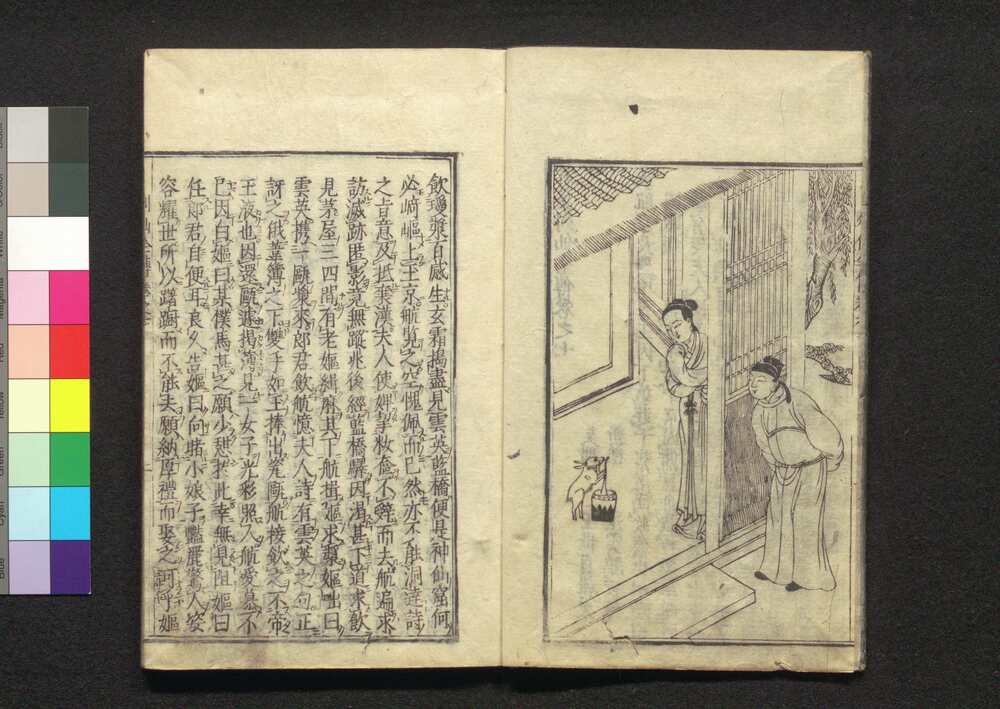 飲瓊漿百感生玄霜搗盡見雲英藍橋便是神仙窟何
必崎嶇上玉京航覽之空愧佩而已然亦不能洞達詩
之旨意及抵襄漢夫人使婢挈粧奩不辞而去航遍求
訪滅跡匿影竟無蹤兆後經藍橋驛因渴甚下道求飲
見茅屋三四間有老嫗緝麻其下航揖嫗求漿嫗咄曰
雲英携一甌漿來郎君飲航憶夫人詩有雲英之句正
訝之俄葦簿之下雙手如玉捧出瓷甌航接飲之不啻
玉液也因還甌遽揭簿見一女子光彩照人航愛慕不
已因白嫗曰某僕馬甚乏願少憩於此幸無見阻嫗曰
任郎君自便耳良久告嫗曰向睹小娘子艷麗驚人姿
容耀世所以躊躇而不能去願納厚禮而娶之可乎嫗